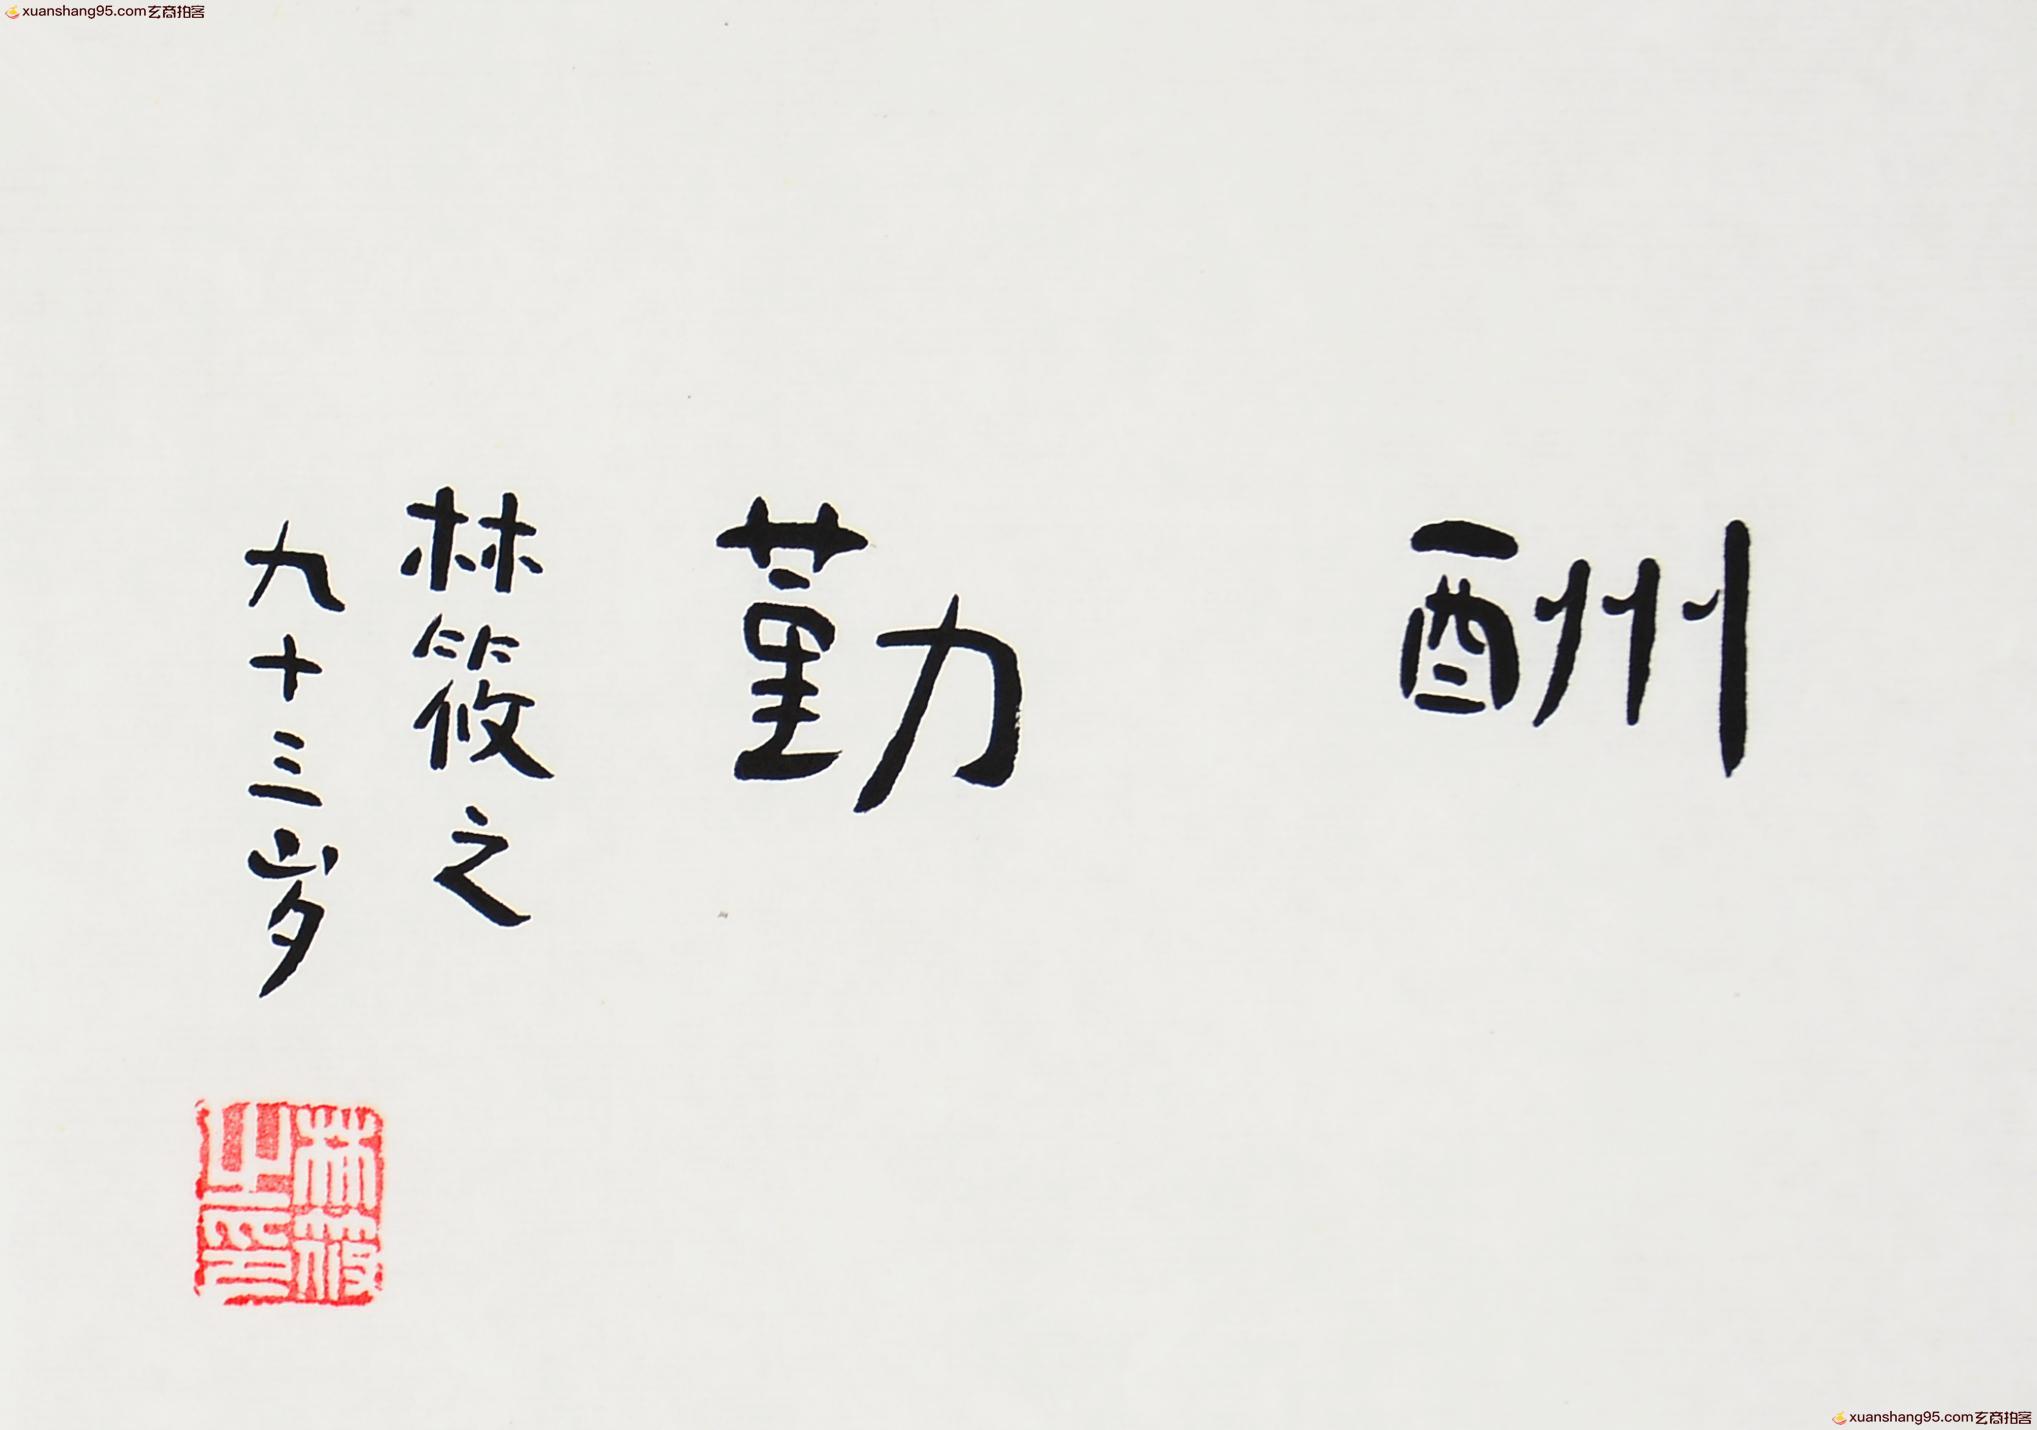 xuanshang95.com玄商拍客
酬勤
林筱之
九十三岁
林筱之印
xuanshang95.com玄商拍客